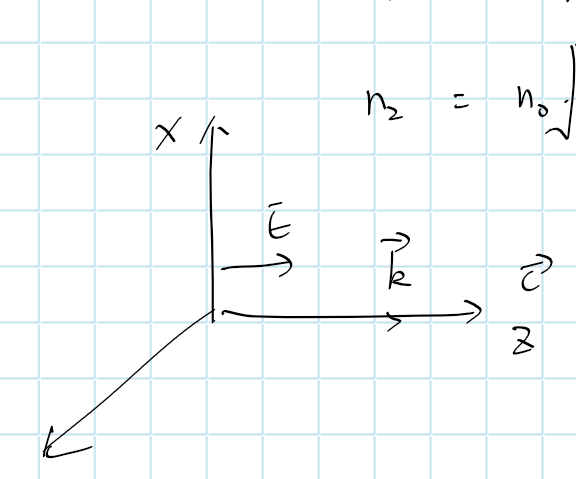 n₂ = n₀√
X
E̅
k⃗
c⃗
z